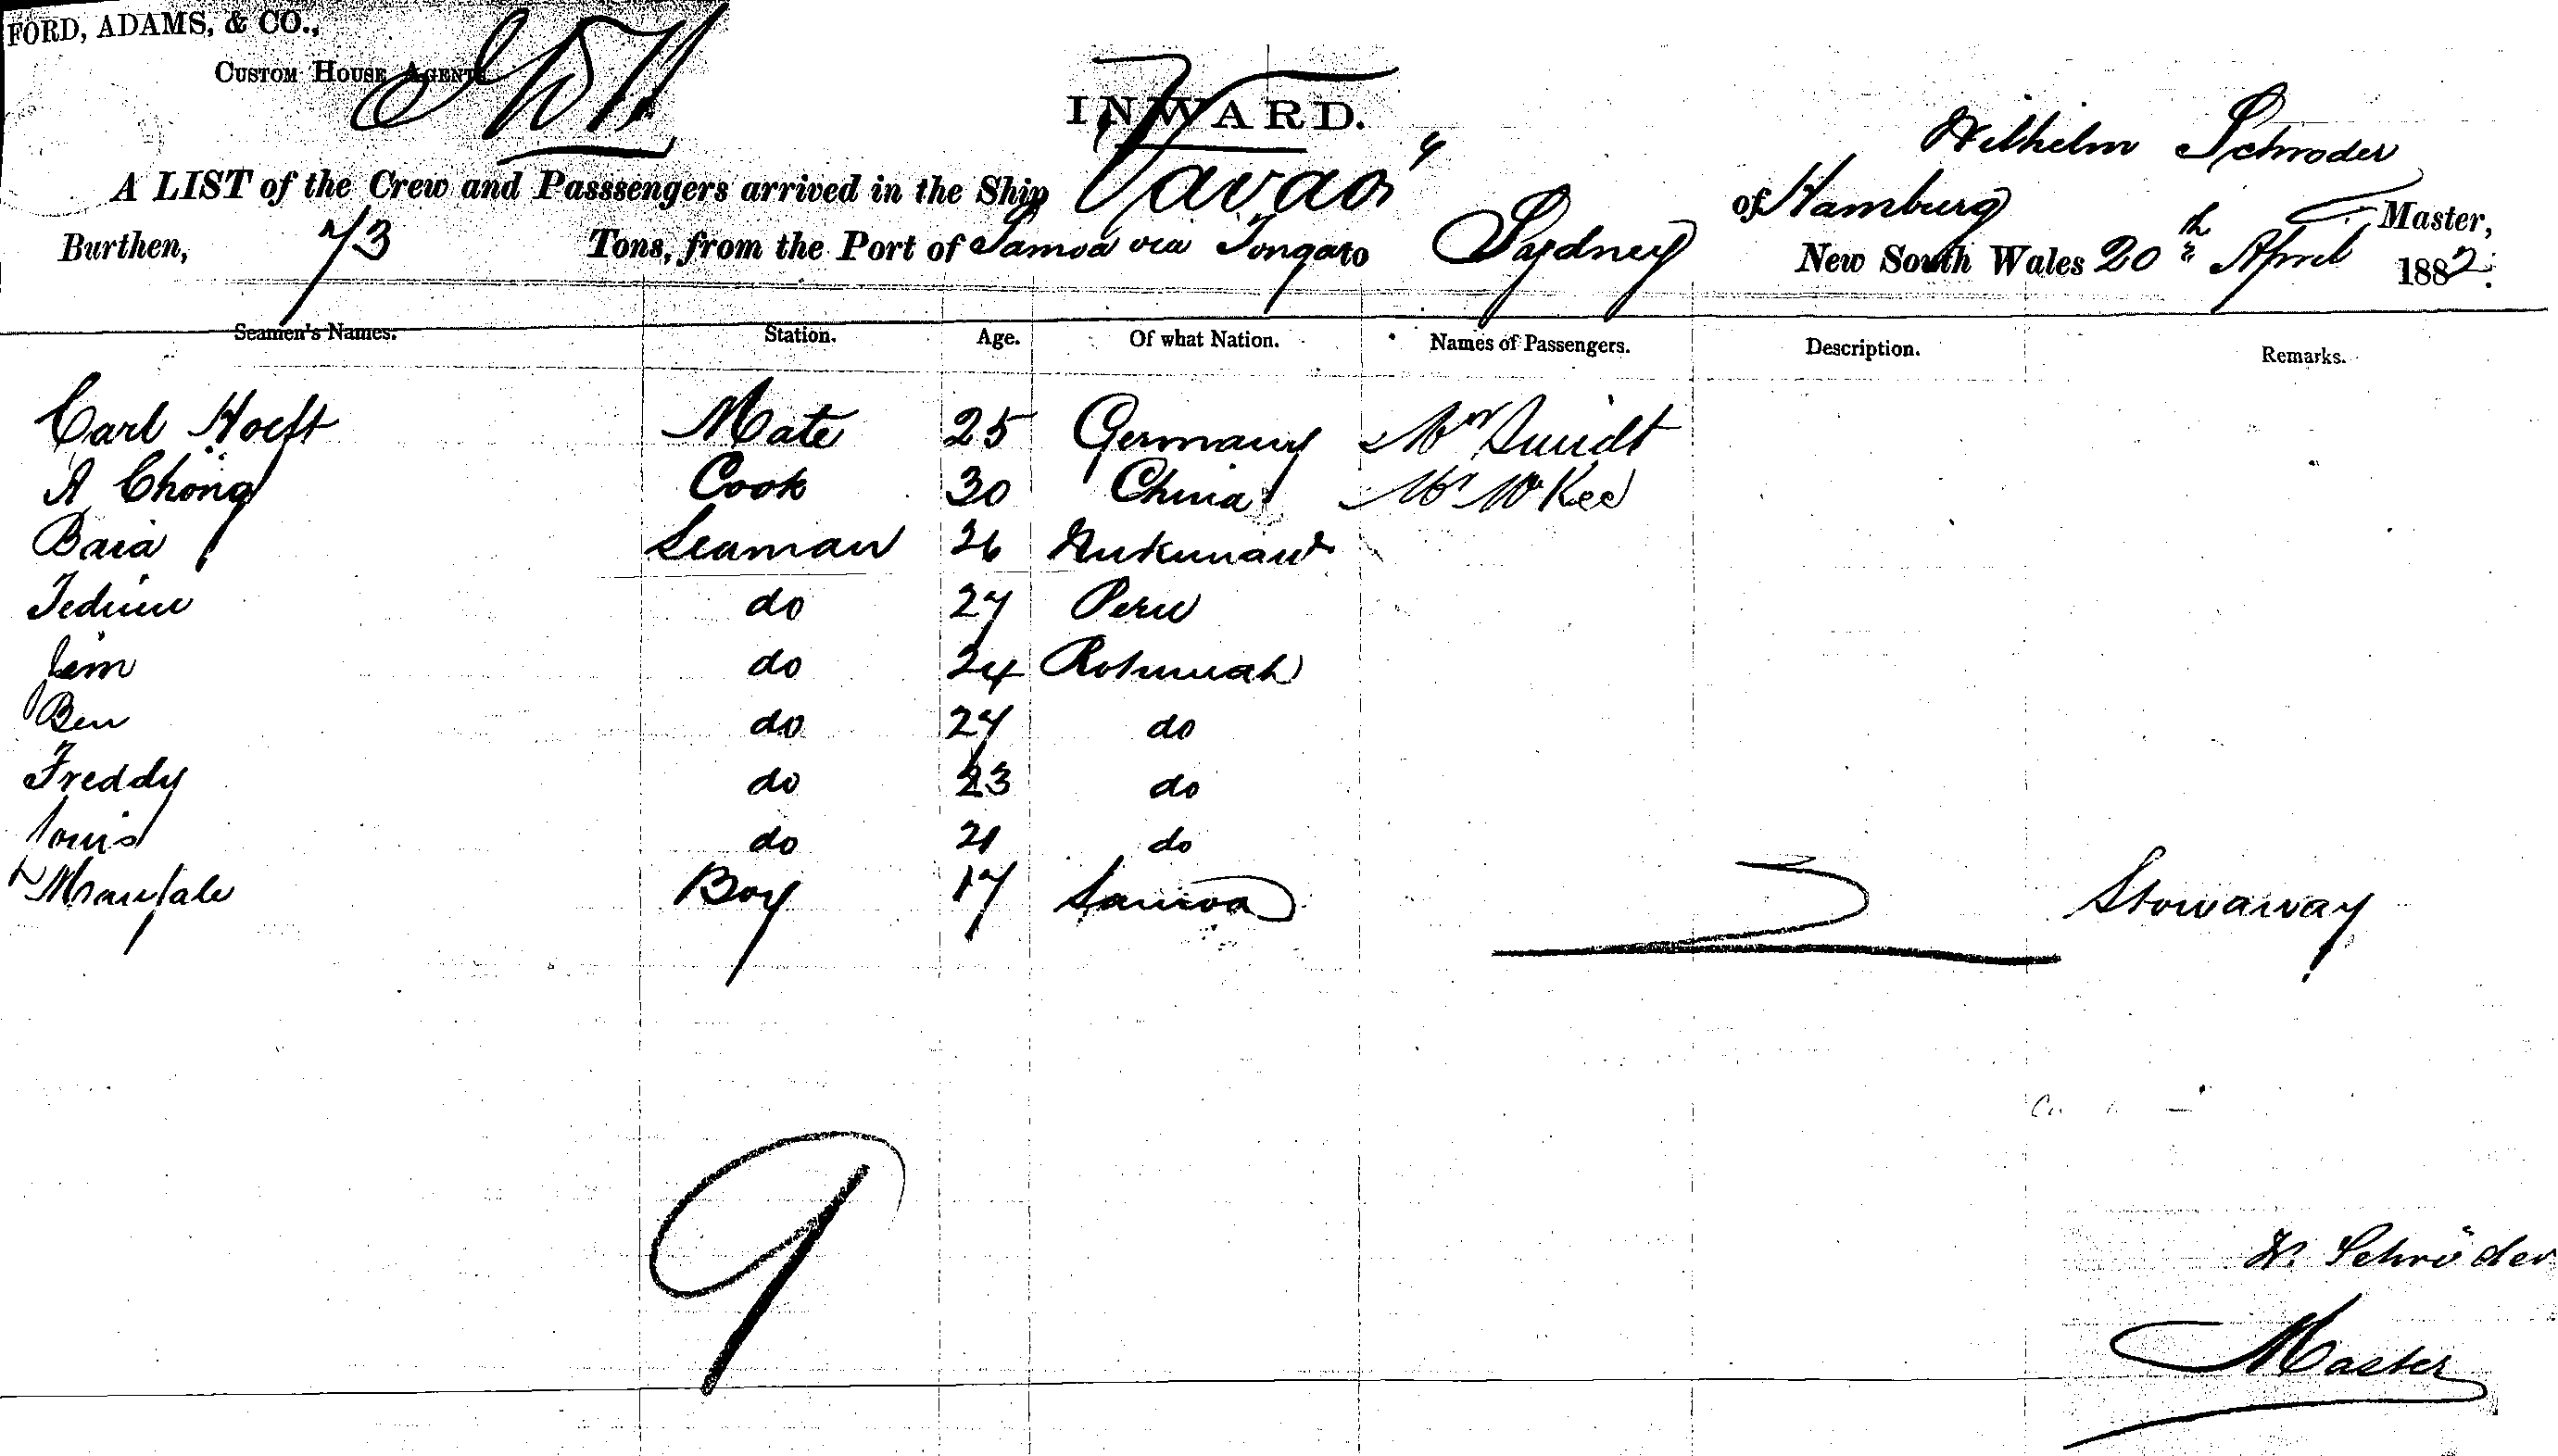 FORD, ADAMS, & CO.,
CUSTOM HOUSE AGENTS
INWARD.
Wilhelm Schroder
A LIST of the Crew and Passsengers arrived in the Ship "Vavao" of Hamburg Master,
Burthen, 73 Tons, from the Port of Samoa via Tonga to Sydney New South Wales 20th April 1882.
Seamen's Names. Station. Age. Of what Nation. Names of Passengers. Description. Remarks.
Carl Hoeft Mate 25 Germany Mr
A Chong Cook 30 China Mr McKee
Baia Seaman 26 Nukunau
do 27 Peru
Jim do 24 Rotumah
Ben do 27 do
Freddy do 23 do
Louis do 21 do
Boy 17 Samoa Stowaway
9
W. Schröder
Master